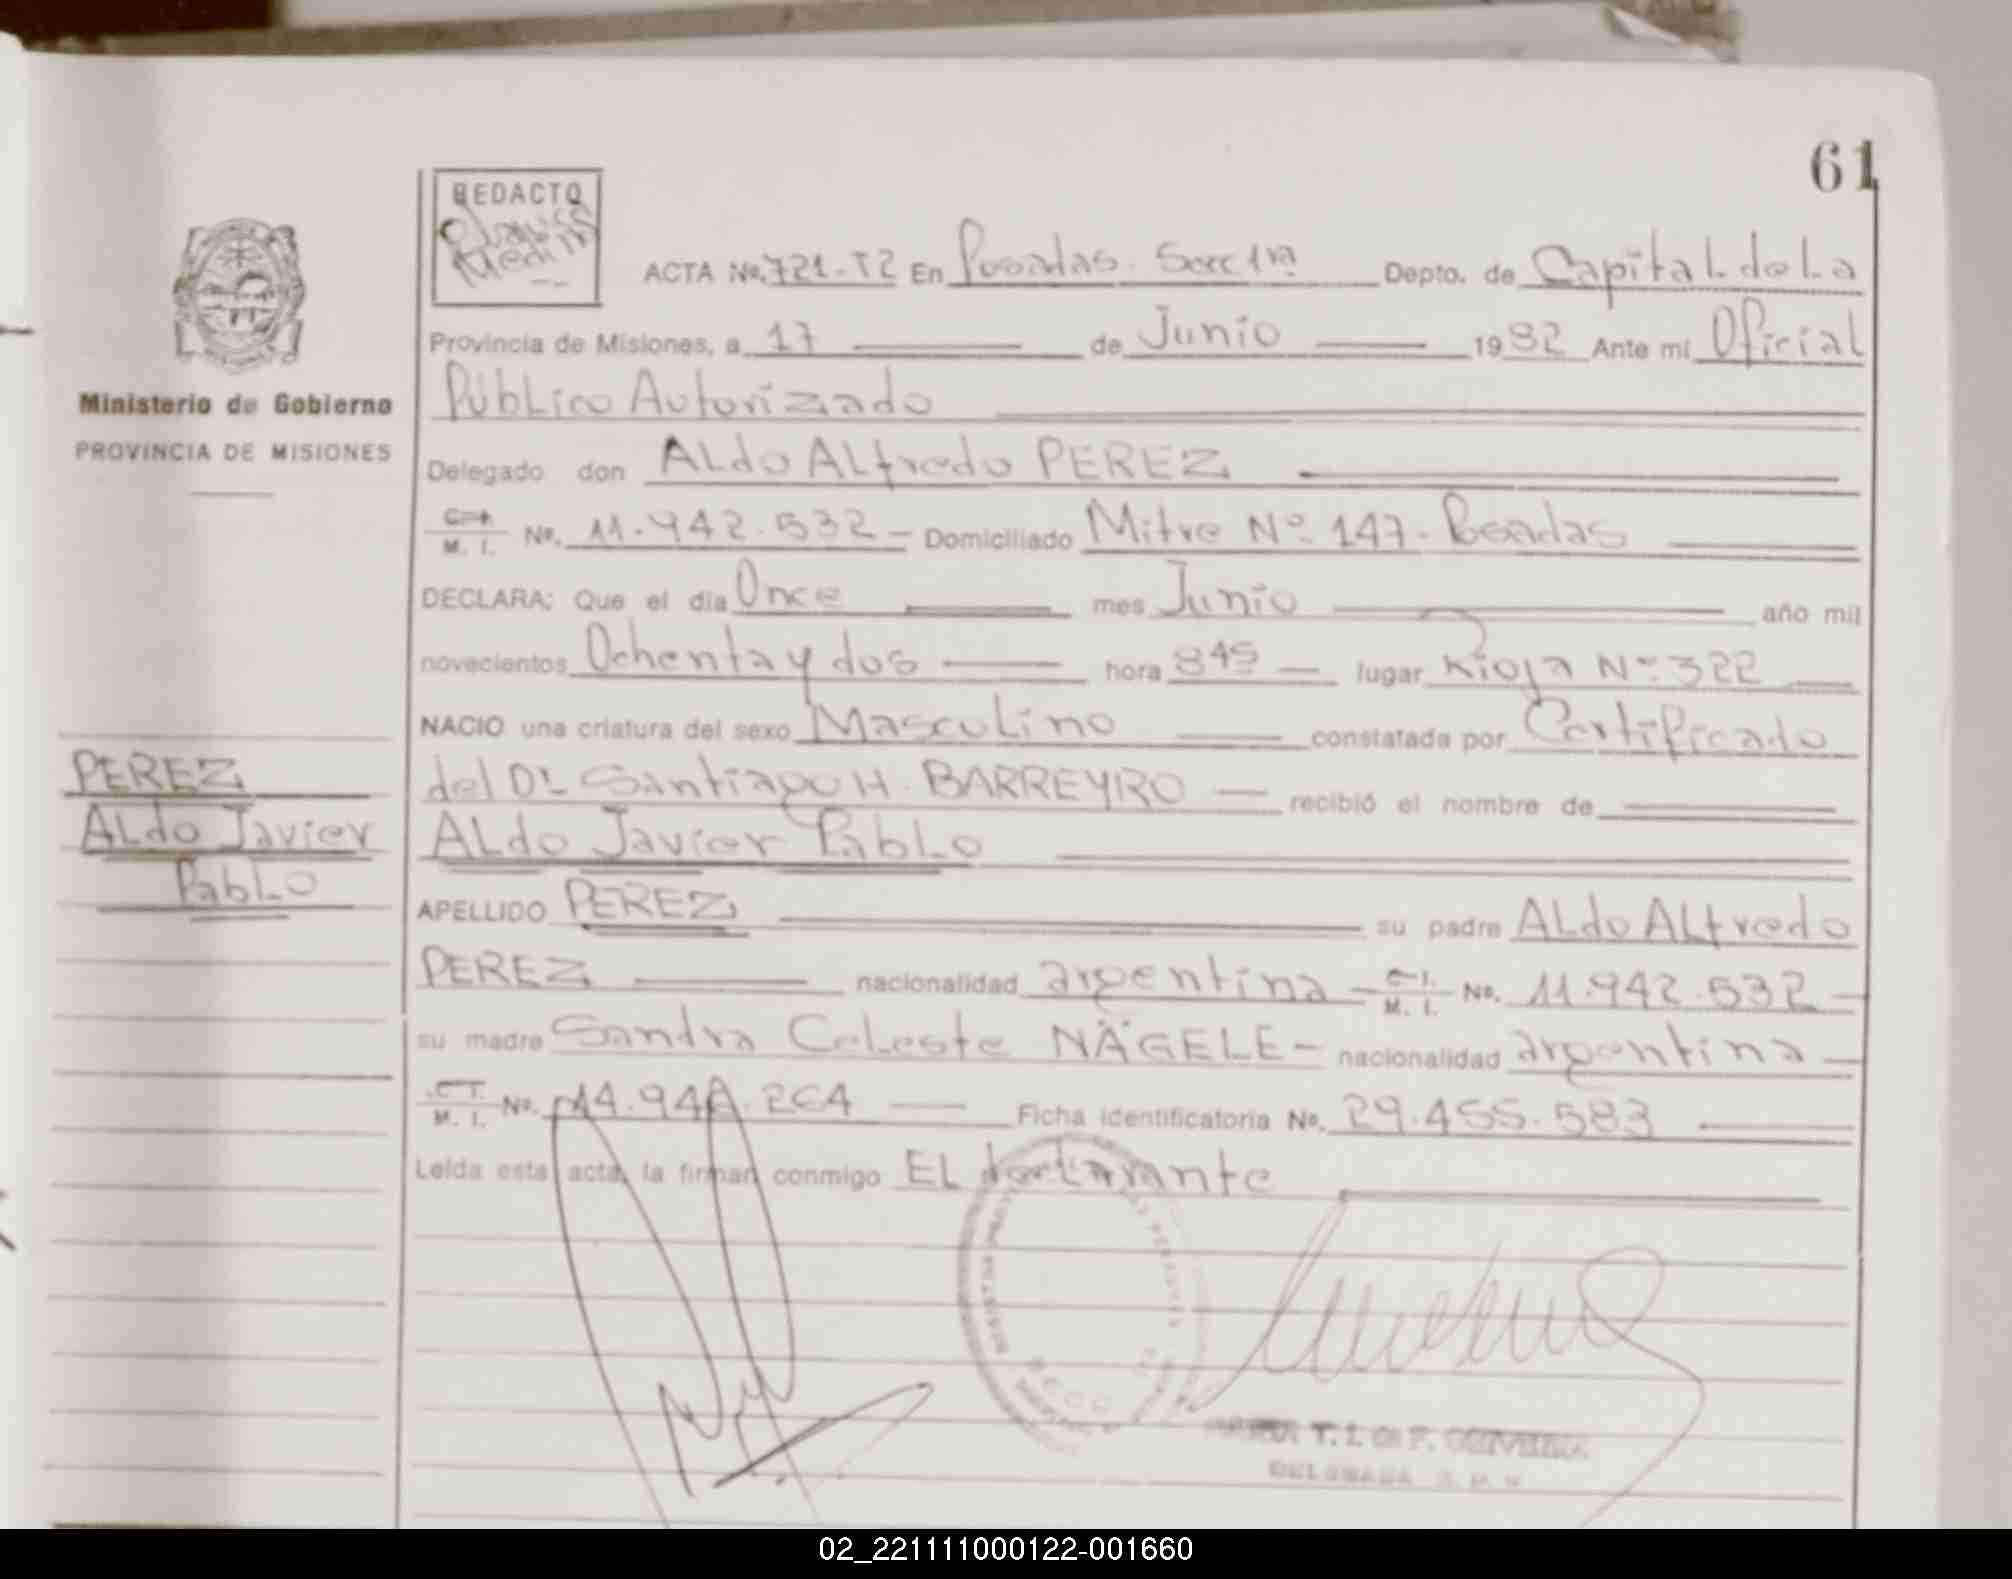 61
REDACTO
ACTA No. 721-T2 En Posadas. Secc 1ra Depto. de Capital de La
Provincia de Misiones, a 17 de Junio 1982 Ante mi Oficial
Público Autorizado
Delegado don ALdo ALfredo PEREZ
C.I. M. I. No. 11.942.532 - Domiciliado Mitre Nº 147 - Posadas
DECLARA: Que el día Once mes Junio año mil
novecientos Ochenta y dos hora 8 45 lugar Rioja Nº 322
NACIO una criatura del sexo Masculino constatada por Certificado
del Dr. Santiago H. BARREYRO recibió el nombre de
ALdo Javier PabLo
APELLIDO PEREZ su padre ALdo ALfredo
PEREZ nacionalidad argentina - C.I. M. I. No. 11.942.532 -
su madre Sandra Celeste NÄGELE - nacionalidad argentina -
C.I. M. I. No. Ficha identificatoria No. 29.455.583
Leída esta acta, la firman conmigo EL declarante
Ministerio de Gobierno
PROVINCIA DE MISIONES
PEREZ
ALdo Javier
PabLo
02_221111000122-001660